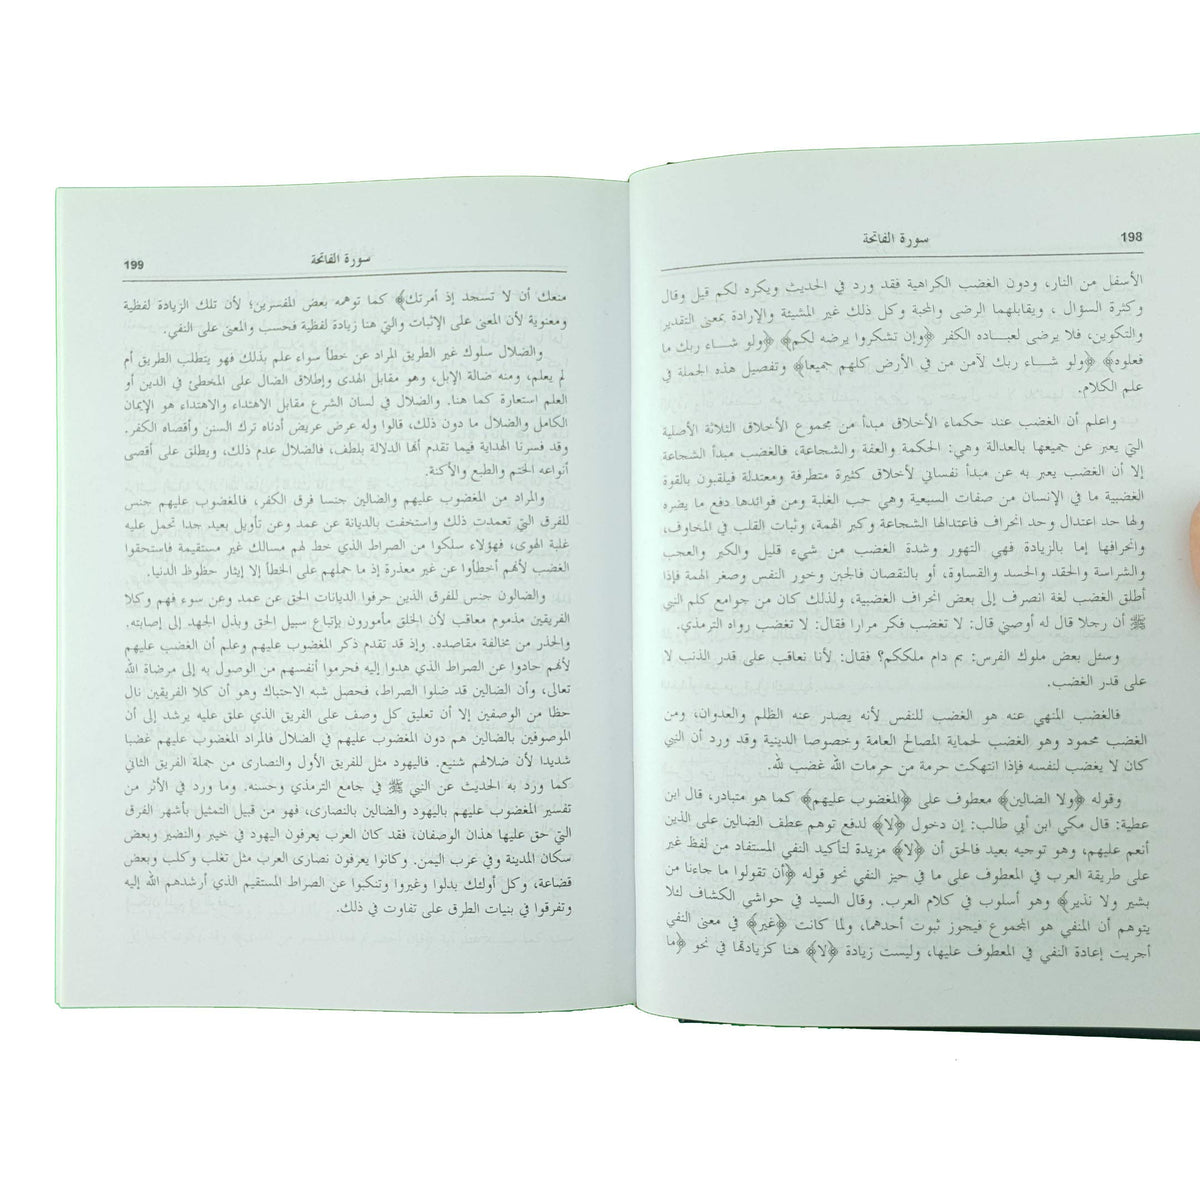 198
سورة الفاتحة
الأسفل من النار، ودون الغضب الكراهية فقد ورد في الحديث ويكره لكم قيل وقال
وكثرة السؤال ، ويقابلهما الرضى والمحبة وكل ذلك غير المشيئة والإرادة بمعنى التقدير
والتكوين، فلا يرضى لعباده الكفر ﴿وإن تشكروا يرضه لكم﴾ ﴿ولو شاء ربك ما
فعلوه﴾ ﴿ولو شاء ربك لآمن من في الأرض كلهم جميعا﴾ وتفصيل هذه الجملة في
علم الكلام.
واعلم أن الغضب عند حكماء الأخلاق مبدأ من مجموع الأخلاق الثلاثة الأصلية
التي يعبر عن جميعها بالعدالة وهي: الحكمة والعفة والشجاعة، فالغضب مبدأ الشجاعة
إلا أن الغضب يعبر به عن مبدأ نفساني لأخلاق كثيرة متطرفة ومعتدلة فيلقبون بالقوة
الغضبية ما في الإنسان من صفات السبعية وهي حب الغلبة ومن فوائدها دفع ما يضره
ولها حد اعتدال وحد انحراف فاعتدالها الشجاعة وكبر الهمة، وثبات القلب في المخاوف،
وانحرافها إما بالزيادة فهي التهور وشدة الغضب من شيء قليل والكبر والعجب
والشراسة والحقد والحسد والقساوة، أو بالنقصان فالجبن وخور النفس وصغر الهمة فإذا
أطلق الغضب لغة انصرف إلى بعض انحراف الغضبية، ولذلك كان من جوامع كلم النبي
ﷺ أن رجلا قال له أوصني قال: لا تغضب فكر مرارا فقال: لا تغضب رواه الترمذي.
وسئل بعض ملوك الفرس: بم دام ملككم؟ فقال: لأنا نعاقب على قدر الذنب لا
على قدر الغضب.
فالغضب المنهي عنه هو الغضب للنفس لأنه يصدر عنه الظلم والعدوان، ومن
الغضب محمود وهو الغضب لحماية المصالح العامة وخصوصا الدينية وقد ورد أن النبي
كان لا يغضب لنفسه فإذا انتهكت حرمة من حرمات الله غضب لله.
وقوله ﴿ولا الضالين﴾ معطوف على ﴿المغضوب عليهم﴾ كما هو متبادر، قال ابن
عطية: قال مكي ابن أبي طالب: إن دخول ﴿لا﴾ لدفع توهم عطف الضالين على الذين
أنعم عليهم، وهو توجيه بعيد فالحق أن ﴿لا﴾ مزيدة لتأكيد النفي المستفاد من لفظ غير
على طريقة العرب في المعطوف على ما في حيز النفي نحو قوله ﴿أن تقولوا ما جاءنا من
بشير ولا نذير﴾ وهو أسلوب في كلام العرب. وقال السيد في حواشي الكشاف لئلا
يتوهم أن المنفي هو المجموع فيجوز ثبوت أحدهما، ولما كانت ﴿غير﴾ في معنى النفي
أجريت إعادة النفي في المعطوف عليها، وليست زيادة ﴿لا﴾ هنا كزيادتها في نحو ﴿ما
199
سورة الفاتحة
منعك أن لا تسجد إذ أمرتك﴾ كما توهمه بعض المفسرين؛ لأن تلك الزيادة لفظية
ومعنوية لأن المعنى على الإثبات والتي هنا زيادة لفظية فحسب والمعنى على النفي.
والضلال سلوك غير الطريق المراد عن خطأ سواء علم بذلك فهو يتطلب الطريق أم
لم يعلم، ومنه ضالة الإبل، وهو مقابل الهدى وإطلاق الضال على المخطئ في الدين أو
العلم استعارة كما هنا. والضلال في لسان الشرع مقابل الاهتداء والاهتداء هو الإيمان
الكامل والضلال ما دون ذلك، قالوا وله عرض عريض أدناه ترك السنن وأقصاه الكفر.
وقد فسرنا الهداية فيما تقدم أنها الدلالة بلطف، فالضلال عدم ذلك، ويطلق على أقصى
أنواعه الختم والطبع والأكنة.
والمراد من المغضوب عليهم والضالين جنسا فرق الكفر، فالمغضوب عليهم جنس
للفرق التي تعمدت ذلك واستخفت بالديانة عن عمد وعن تأويل بعيد جدا تحمل عليه
غلبة الهوى، فهؤلاء سلكوا من الصراط الذي خط لهم مسالك غير مستقيمة فاستحقوا
الغضب لأنهم أخطأوا عن غير معذرة إذ ما حملهم على الخطأ إلا إيثار حظوظ الدنيا.
والضالون جنس للفرق الذين حرفوا الديانات الحق عن عمد وعن سوء فهم وكلا
الفريقين مذموم معاقب لأن الخلق مأمورون بإتباع سبيل الحق وبذل الجهد إلى إصابته.
والحذر من مخالفة مقاصده. وإذ قد تقدم ذكر المغضوب عليهم وعلم أن الغضب عليهم
لأنهم حادوا عن الصراط الذي هدوا إليه فحرموا أنفسهم من الوصول به إلى مرضاة الله
تعالى، وأن الضالين قد ضلوا الصراط، فحصل شبه الاحتباك وهو أن كلا الفريقين نال
حظا من الوصفين إلا أن تعليق كل وصف على الفريق الذي علق عليه يرشد إلى أن
الموصوفين بالضالين هم دون المغضوب عليهم في الضلال فالمراد المغضوب عليهم غضبا
شديدا لأن ضلالهم شنيع. فاليهود مثل للفريق الأول والنصارى من جملة الفريق الثاني
كما ورد به الحديث عن النبي ﷺ في جامع الترمذي وحسنه. وما ورد في الأثر من
تفسير المغضوب عليهم باليهود والضالين بالنصارى، فهو من قبيل التمثيل بأشهر الفرق
التي حق عليها هذان الوصفان، فقد كان العرب يعرفون اليهود في خيبر والنضير وبعض
سكان المدينة وفي عرب اليمن. وكانوا يعرفون نصارى العرب مثل تغلب وكلب وبعض
قضاعة، وكل أولئك بدلوا وغيروا وتنكبوا عن الصراط المستقيم الذي أرشدهم الله إليه
وتفرقوا في بنيات الطرق على تفاوت في ذلك.